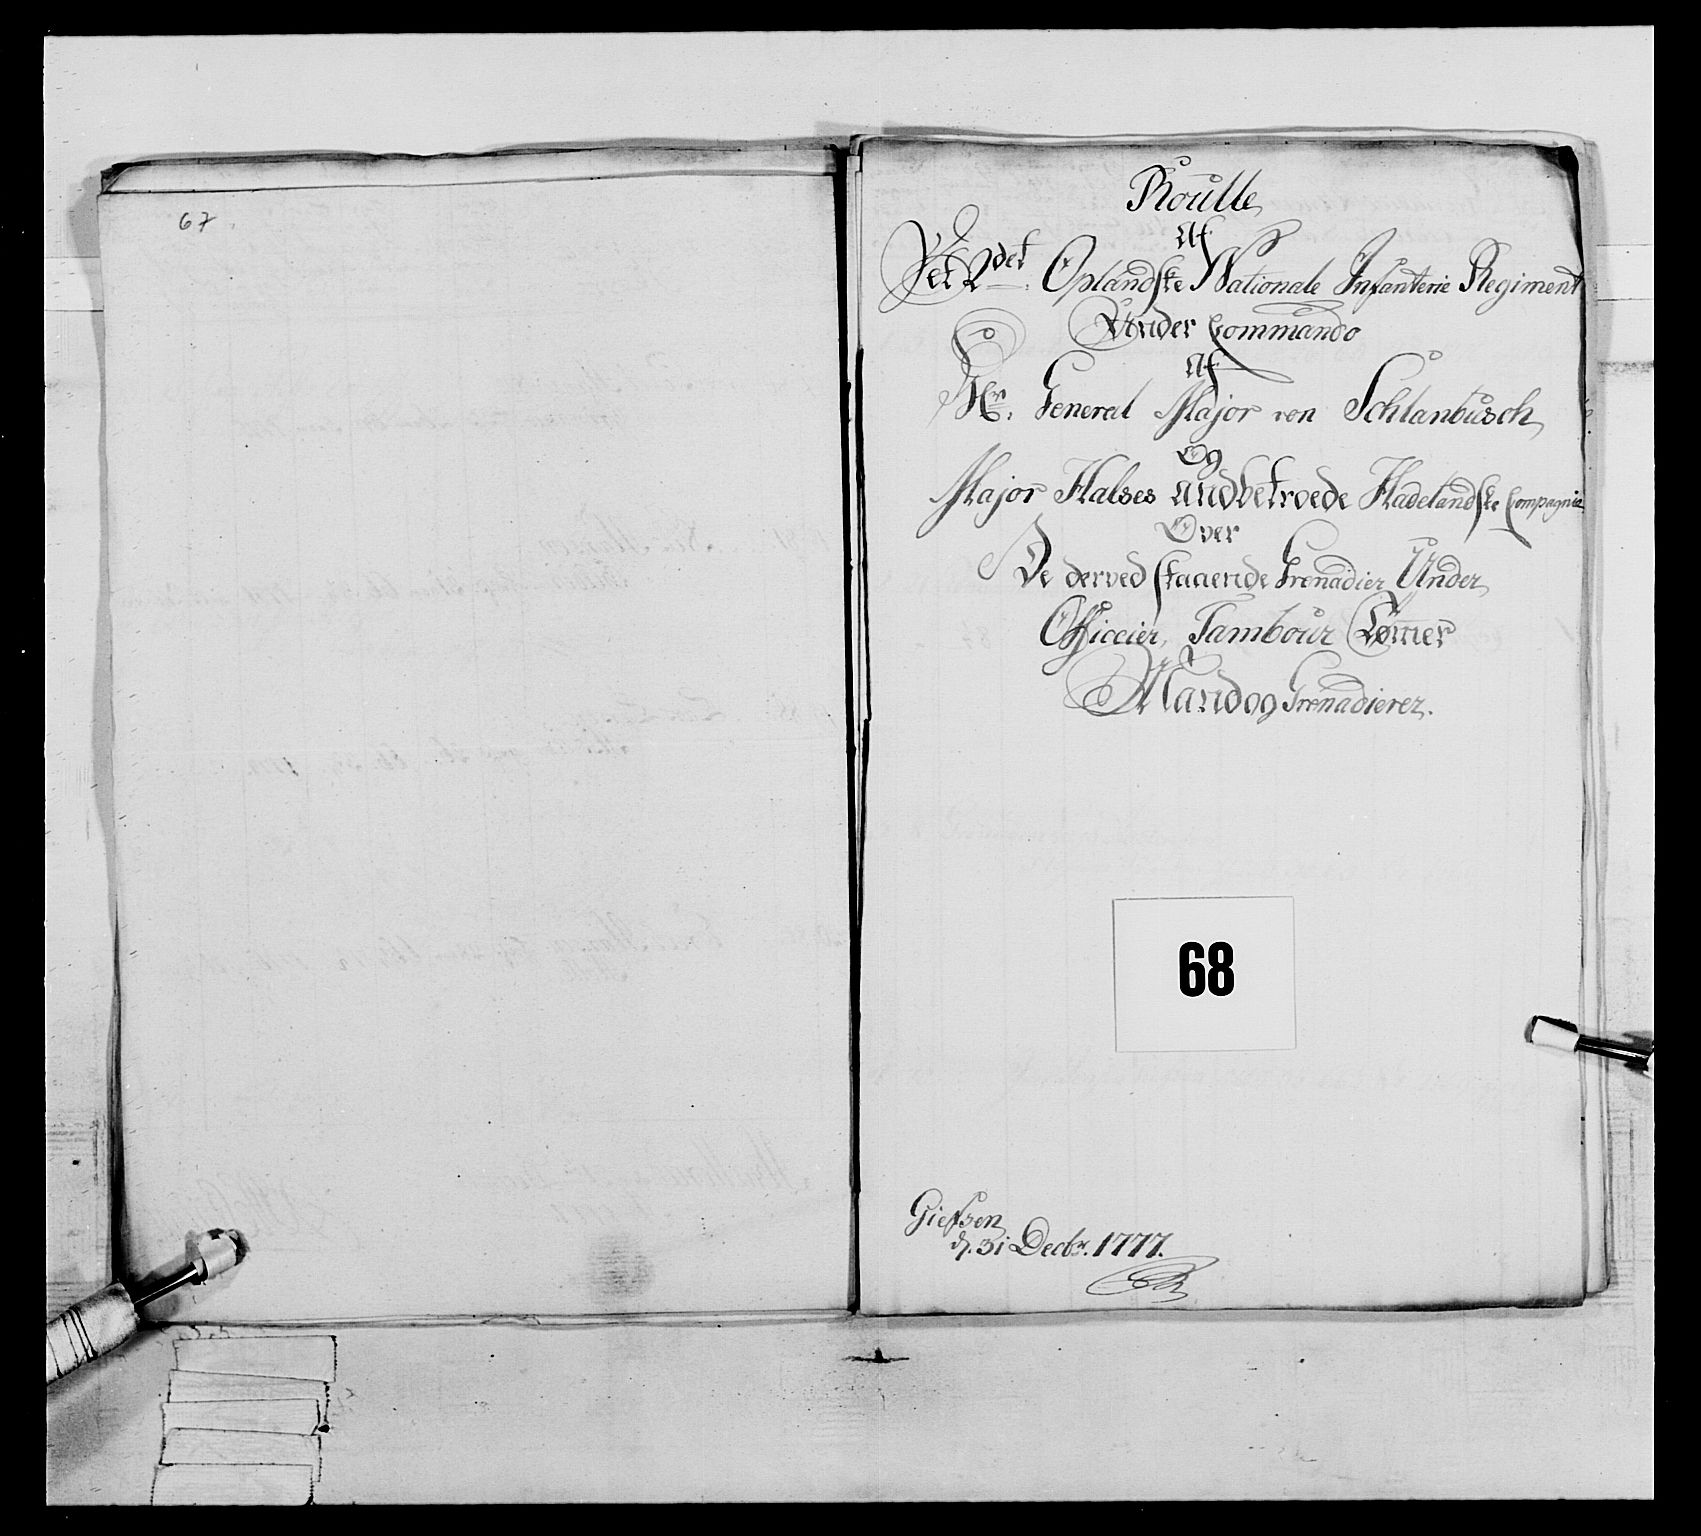 67.
Roulle
Af
Det 2det Oplandske Nationale Infanterie Regiment
Under Commando
Af
Hr. General Major von Schlanbusch
Og
Major Halses Andbetroede Hadelandske Compagnie
Over
De derved staaende Grenadier Under
Officeier, Tambour Tømer
Mand og Grenadierer.
68
Giefsen
d. 31 Decbr. 1777.